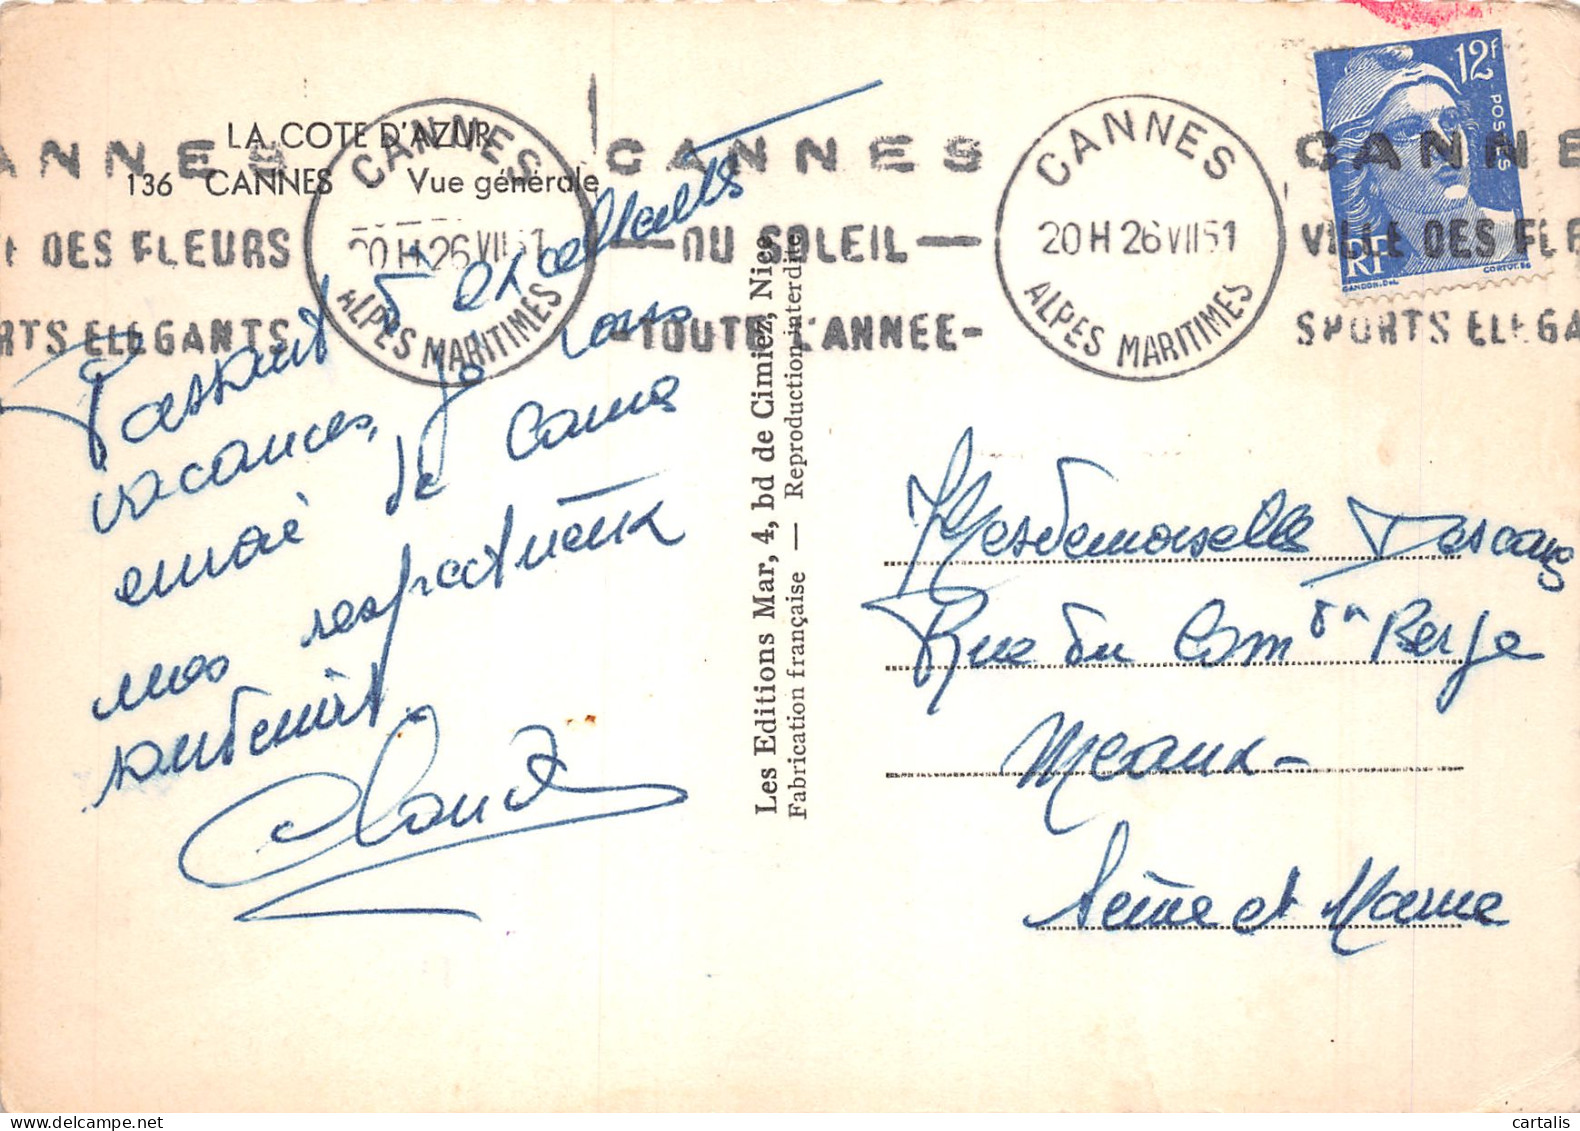 LA COTE D'AZUR
136 CANNES Vue générale
ANNES
DES FLEURS
RTS ELEGANTS
CANNES
20H 26 VII 51
ALPES MARITIMES
CANNES
—DU SOLEIL—
-TOUTE L'ANNEE-
CANNES
20H 26 VII 51
ALPES MARITIMES
CANNE
VILLE DES FLE
SPORTS ELEGA
12F
POSTES
RF
GANDON. DEL
CORTOT. SC
Passant d'excellentes
vacances, je vous
envoie de Cannes
mes respectueux
sentiments
Claude
Les Editions Mar, 4, bd de Cimiez, Nice
Fabrication française — Reproduction interdite
Mesdemoiselles Descamps
Rue du Comdn Berge
Meaux-
Seine et Marne
cartalis